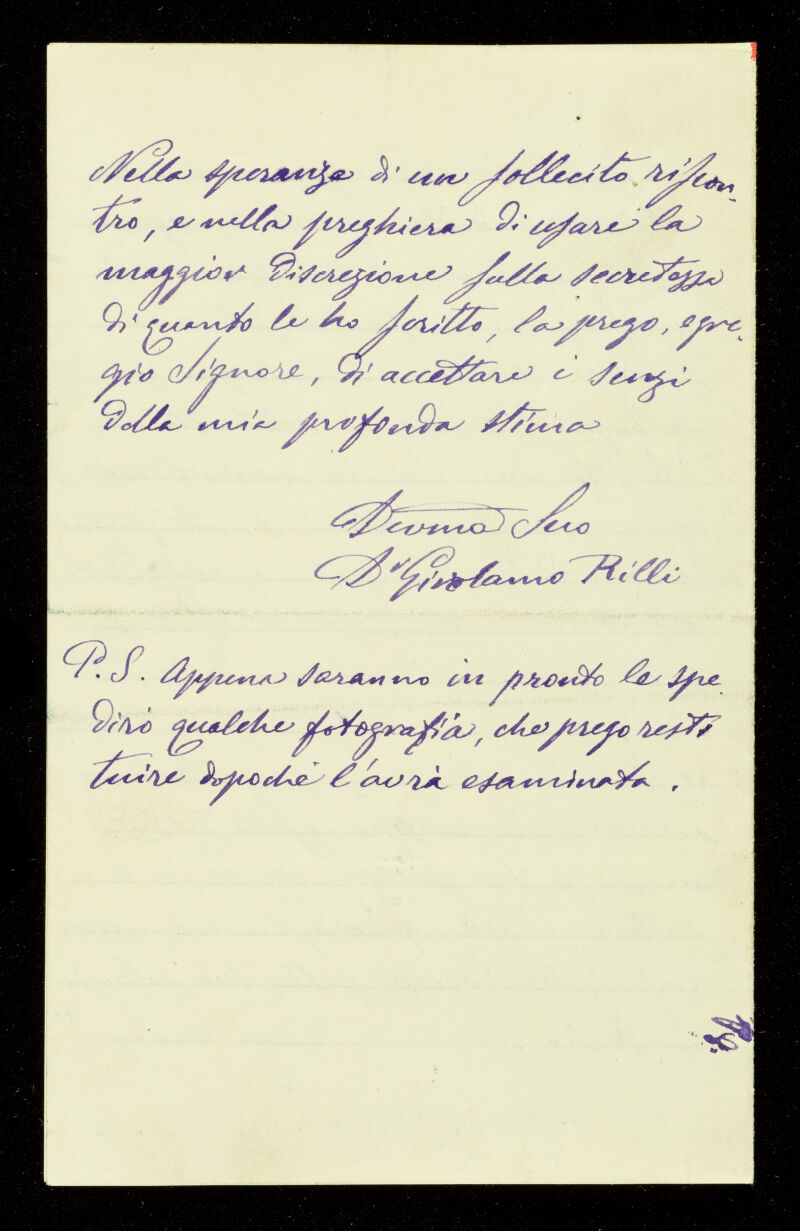 Nella speranza di un sollecito riscon-
tro, e nella preghiera di usare la
maggior discrezione sulla secretezza
di quanto le ho scritto, la prego, egre-
gio Signore, di accettare i sensi
della mia profonda stima
Devmo Suo
Dr Girolamo Rilli
P. S. Appena saranno in pronto le spe
dirò qualche fotografia, che prego resti
tuire dopochè l'avrà esaminata.